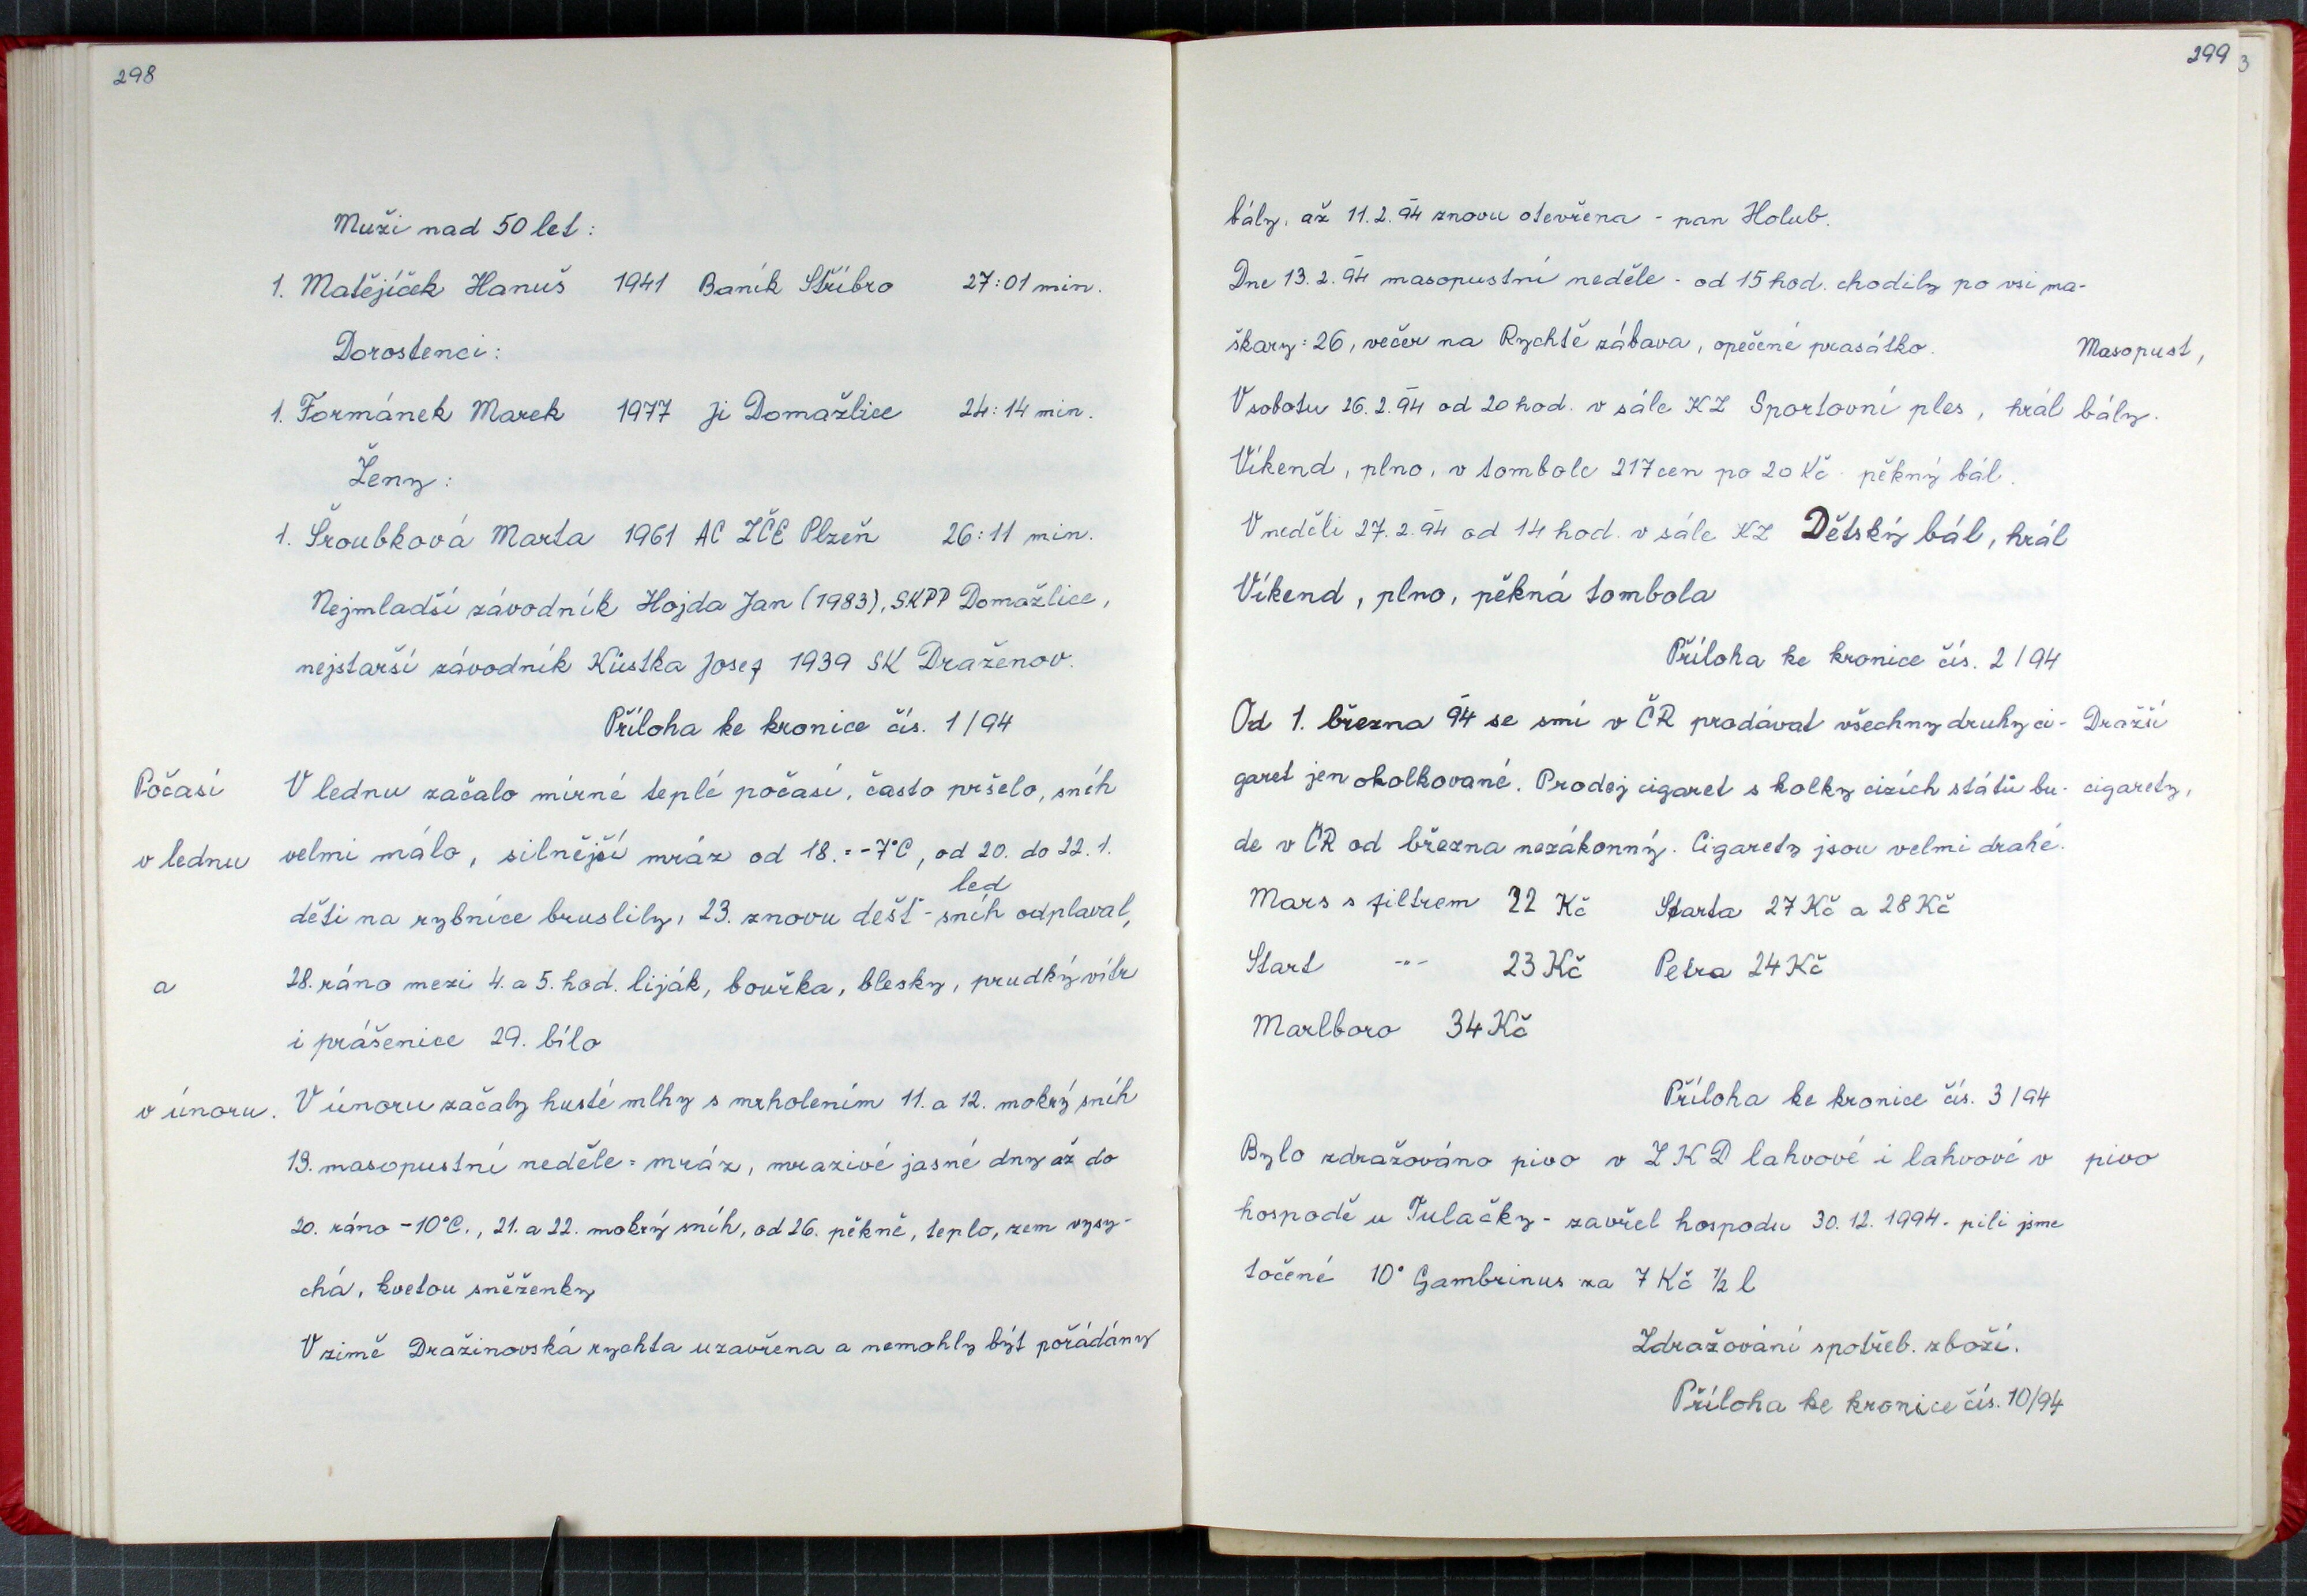 298
Muži nad 50 let:
1. Matějíček Hanuš 1941 Baník Stříbro 27:01 min.
Dorostenci:
1. Formánek Marek 1977 Ji Domažlice 24:14 min.
Ženy:
1. Šroubková Marta 1961 AC ZČE Plzeň 26:11 min.
Nejmladší závodník Hojda Jan (1983), SKPP Domažlice,
nejstarší závodník Küstka Josef 1939 SK Draženov.
Příloha ke kronice čís. 1/94
Počasí V lednu začalo mírné teplé počasí, často pršelo, sníh
v lednu velmi málo, silnější mráz od 18. = -7°C, od 20. do 22. 1.
led
děti na rybníce bruslily, 23. znovu déšť - sníh odplaval,
a 28. ráno mezi 4. a 5. hod. liják, bouřka, blesky, prudký vítr
i prášenice 29. bílo
v únoru. V únoru začaly husté mlhy s mrholením 11. a 12. mokrý sníh
13. masopustní neděle = mráz, mrazivé jasné dny až do
20. ráno -10°C., 21. a 22. mokrý sníh, od 26. pěkně, teplo, zem vysy-
chá, kvetou sněženky
V zimě Dražinovská rychta uzavřena a nemohly být pořádány
299
3
bály, až 11. 2. 94 znovu otevřena - pan Holub.
Dne 13. 2. 94 masopustní neděle - od 15 hod. chodily po vsi ma-
škary: 26, večer na Rychtě zábava, opečené prasátko. Masopust,
V sobotu 26. 2. 94 od 20 hod. v sále KZ Sportovní ples, hrál bály.
Víkend, plno, v tombole 217 cen po 20 Kč - pěkný bál.
V neděli 27. 2. 94 od 14 hod. v sále KZ Dětský bál, hrál
Víkend, plno, pěkná tombola
Příloha ke kronice čís. 2/94
Od 1. března 94 se smí v ČR prodávat všechny druhy ci- Dražší
garet jen okolkované. Prodej cigaret s kolky cizích států bu- cigarety,
de v ČR od března nezákonný. Cigarety jsou velmi drahé.
Mars s filtrem 22 Kč Sparta 27 Kč a 28 Kč
Start -"- 23 Kč Petra 24 Kč
Marlboro 34 Kč
Příloha ke kronice čís. 3/94
Bylo zdražováno pivo v ZKD lahvové i lahvové v pivo
hospodě u Tulačky - zavřel hospodu 30. 12. 1994 - pili jsme
točené 10° Gambrinus za 7 Kč ½ l
Zdražování spotřeb. zboží.
Příloha ke kronice čís. 10/94